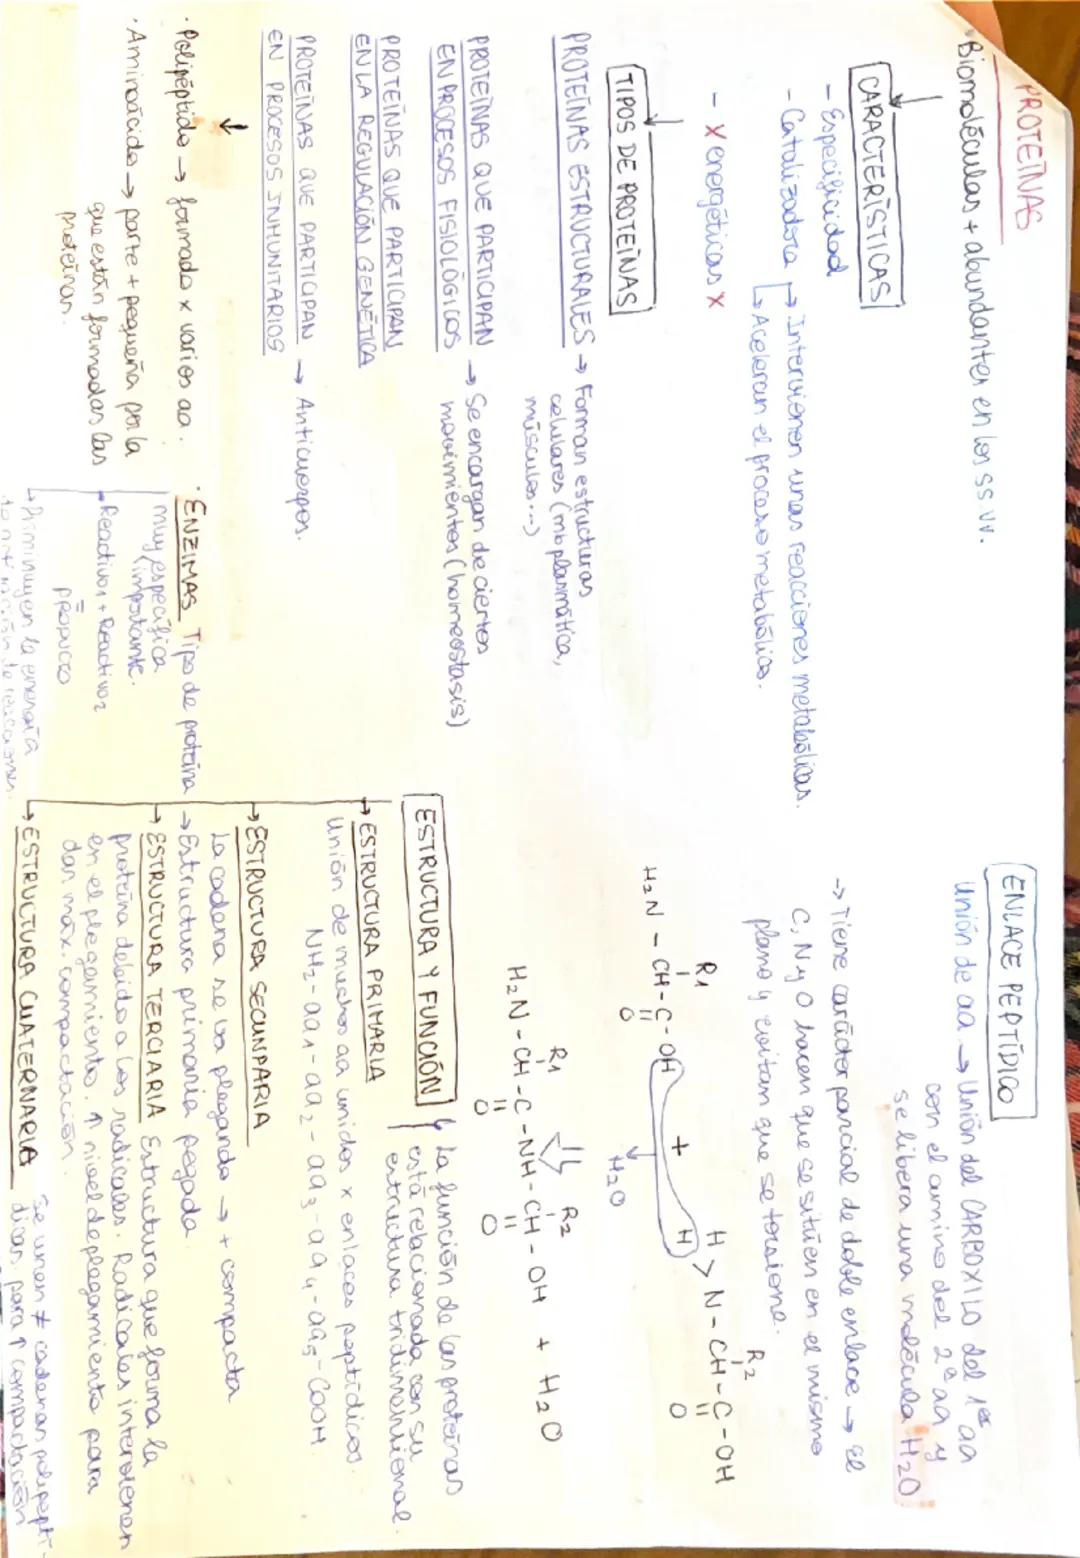 PROTEÏNAS
· Biomoléculas + abundantes en los SS.VV.
CARACTERÍSTICAS
- Especificidad
- Catalizadora → Intervienen unas reacciones metabólicas.
↳ Aceleran el proceso metabólico.
- X energéticas X
TIPOS DE PROTEÏNAS
PROTEÏNAS ESTRUCTURALES → Forman estructuras
celulares (mb plasmática,
músculos...)
PROTEÏNAS QUE PARTICIPAN → Se encargan de ciertos
EN PROCESOS FISIOLÓGICOS movimientos (homeostasis)
PROTEÏNAS QUE PARTICIPAN
EN LA REGULACIÓN GENÉTICA
PROTEÏNAS QUE PARTICIPAN → Anticuerpos.
EN PROCESOS INMUNITARIOS
· Polipéptido → formado x varios aa.
· Aminoácido → parte + pequeña por la
que están formadas las
proteínas.
· ENZIMAS Tipo de proteína
muy específica
importante.
Reactivo1 + Reactivo2
=
PRODUCTO
↳ Disminuyen la energía
ENLACE PEPTÍDICO
Unión de aa → Unión del CARBOXILO del 1er aa
con el amino del 2º aa y
se libera una molécula H2O
→ Tiene carácter parcial de doble enlace → El
C, N y O hacen que se sitúen en el mismo
plano y evitan que se torsione.
R1 R2
H2N - CH - C - OH + H > N - CH - C - OH
O H O
H2O
R1 R2
H2N - CH - C - NH - CH - OH + H2O
O O
ESTRUCTURA Y FUNCIÓN La función de las proteínas
está relacionada con su
estructura tridimensional.
→ ESTRUCTURA PRIMARIA
Unión de muchos aa unidos x enlaces peptídicos.
NH2 - aa1 - aa2 - aa3 - aa4 - aa5 - COOH.
→ ESTRUCTURA SECUNDARIA
La cadena se va plegando → + compacta
→ Estructura primaria pegada.
→ ESTRUCTURA TERCIARIA Estructura que forma la
proteína debido a los radicales. Radicales intervienen
en el plegamiento. ↑ nivel de plegamiento para
dar máx. compactación.
→ ESTRUCTURA CUATERNARIA Se unen ≠ cadenas polipeptí-
dicas para ↑ compactación